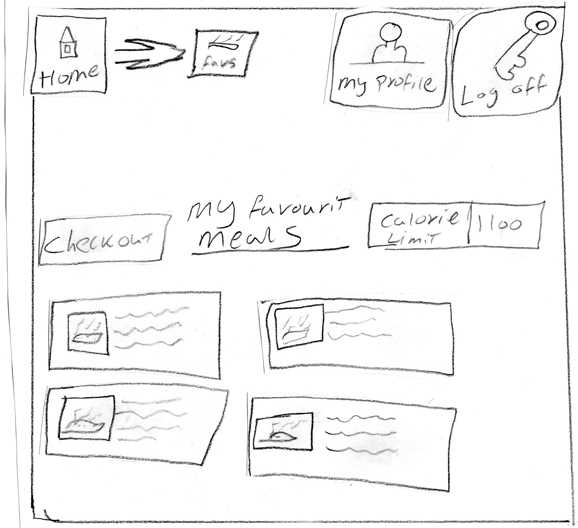 Home
favs
My Profile
Log off
Checkout
My favourit
Meals
Calorie
Limit
1100